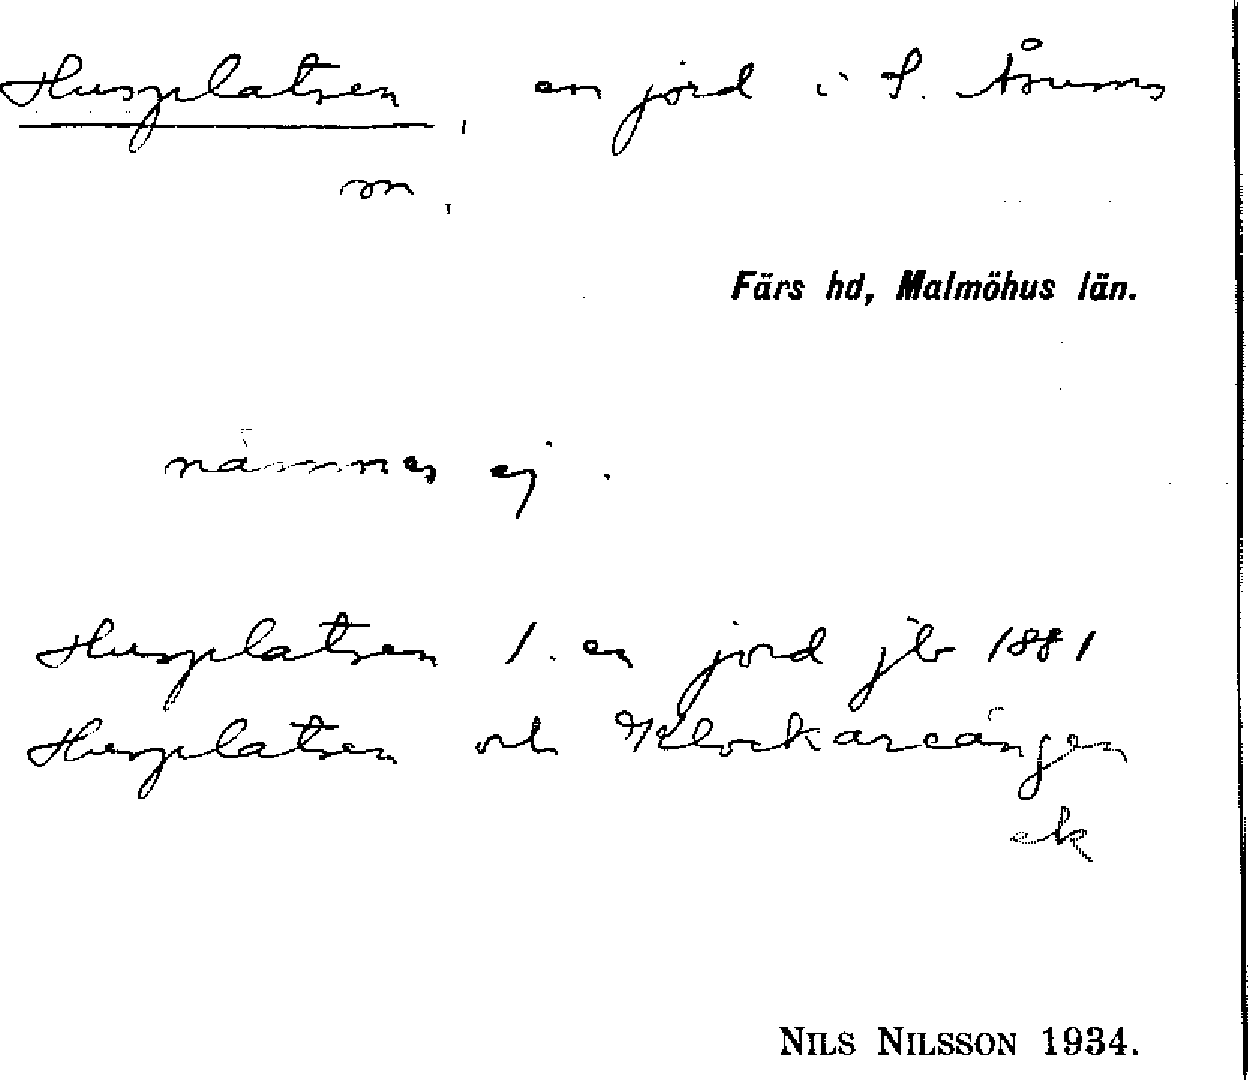 Husplatsen, en jord i S. Åsums
sn,
Färs hd, Malmöhus län.
nämnes ej.
Husplatsen l. en jord jb 1881
Husplatsen och Klockareängen
ek
NILS NILSSON 1934.